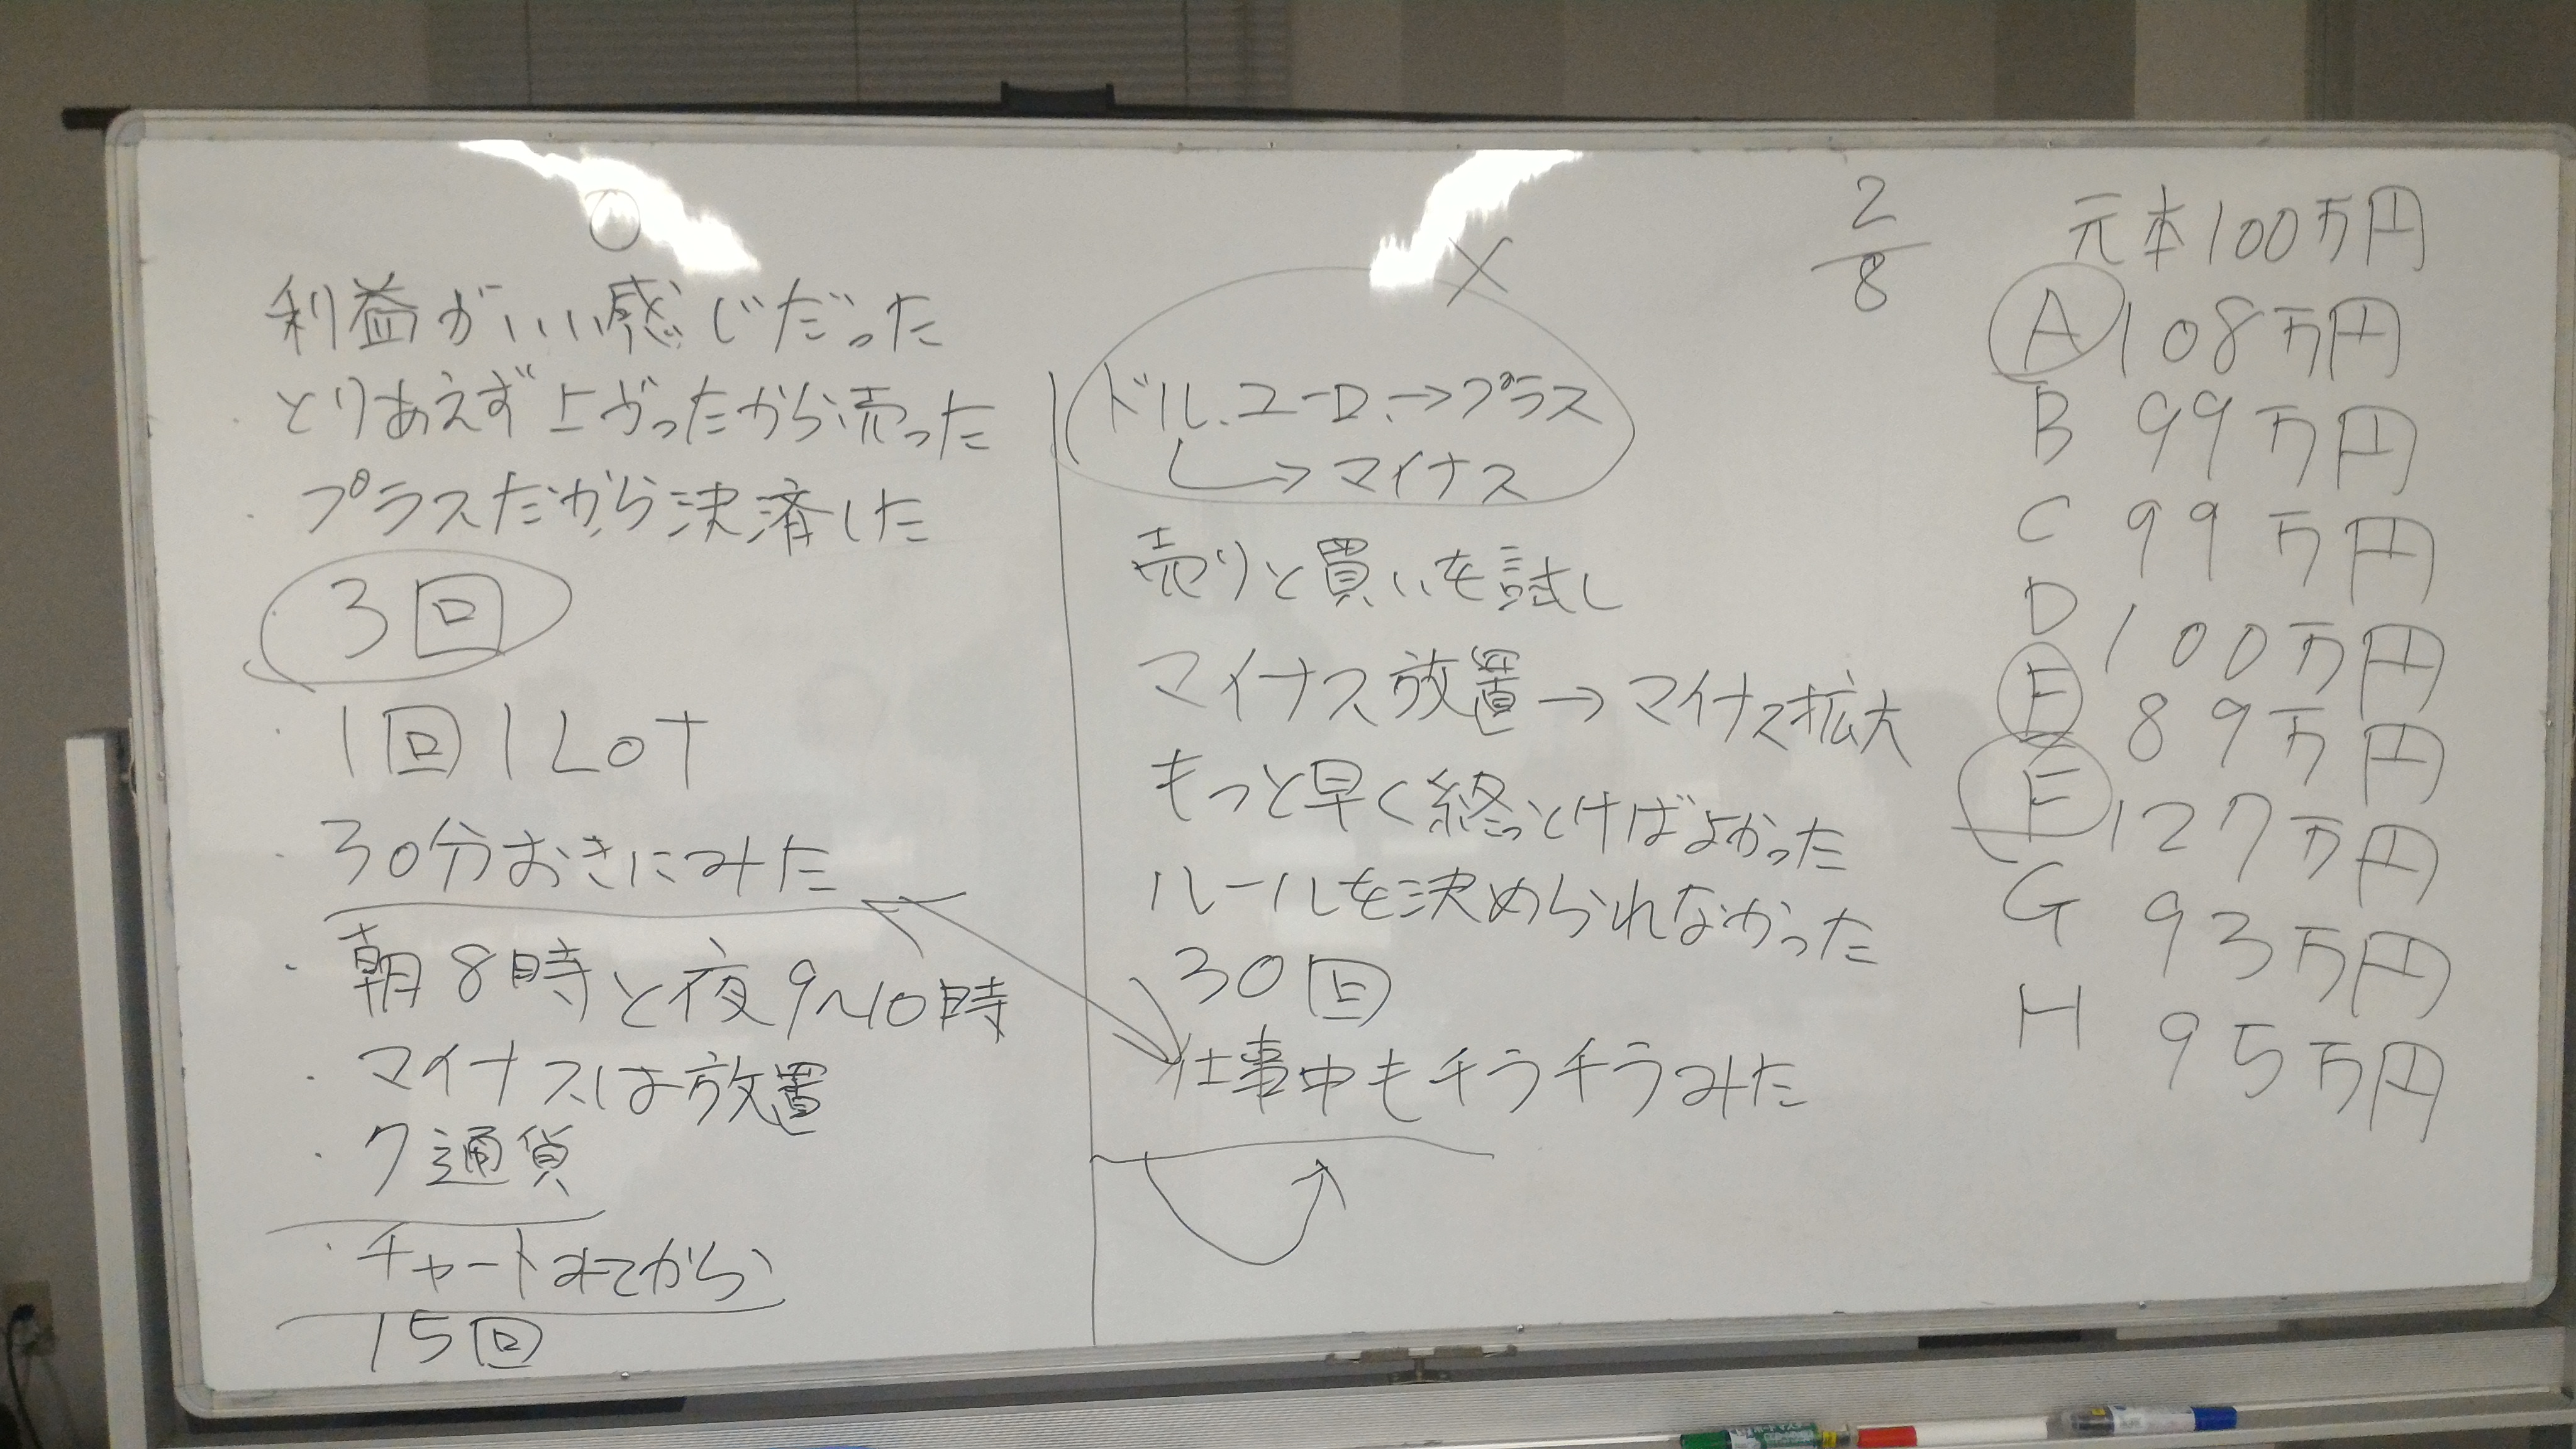 ○
利益がいい感じだった
・とりあえず上がったから売った
・プラスだから決済した
・3回
・1回1Lot
・30分おきにみた
・朝8時と夜9～10時
・マイナスは放置
・7通貨
・チャートみてから
15回
×
ドル、ユーロ、→プラス
→マイナス
売りと買いを試し
マイナス放置→マイナス拡大
もっと早く終っとけばよかった
ルールを決められなかった
30回
仕事中もチラチラみた
2/8
元本100万円
A 108万円
B 99万円
C 99万円
D 100万円
E 89万円
F 127万円
G 93万円
H 95万円